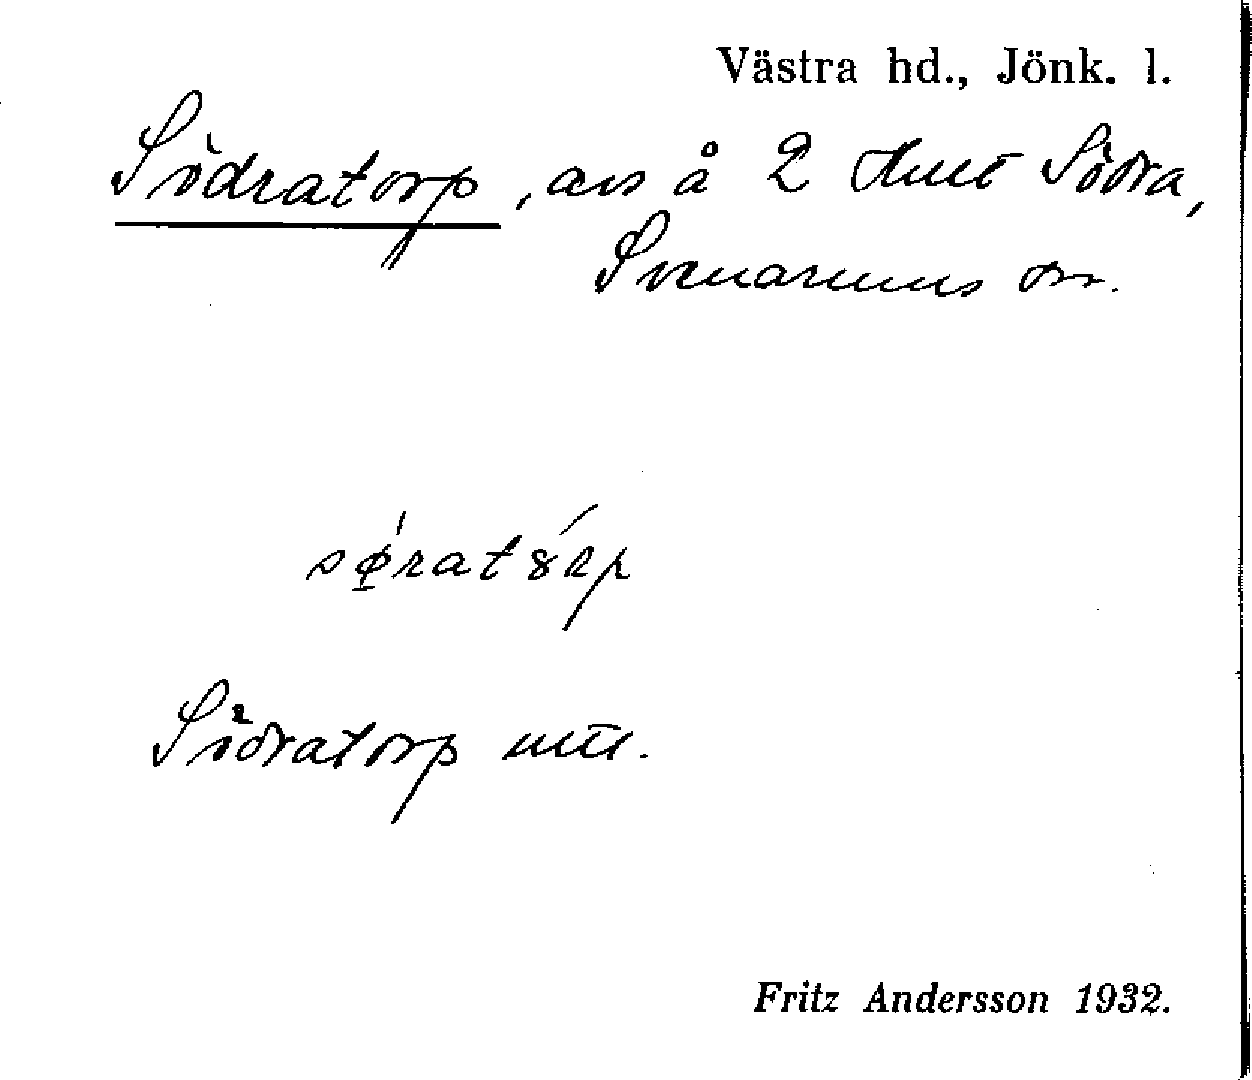 Västra hd., Jönk. l.
Södratorp, avs å 2 Södra,
Svenarums sn.
Södratorp
Fritz Andersson 1932.